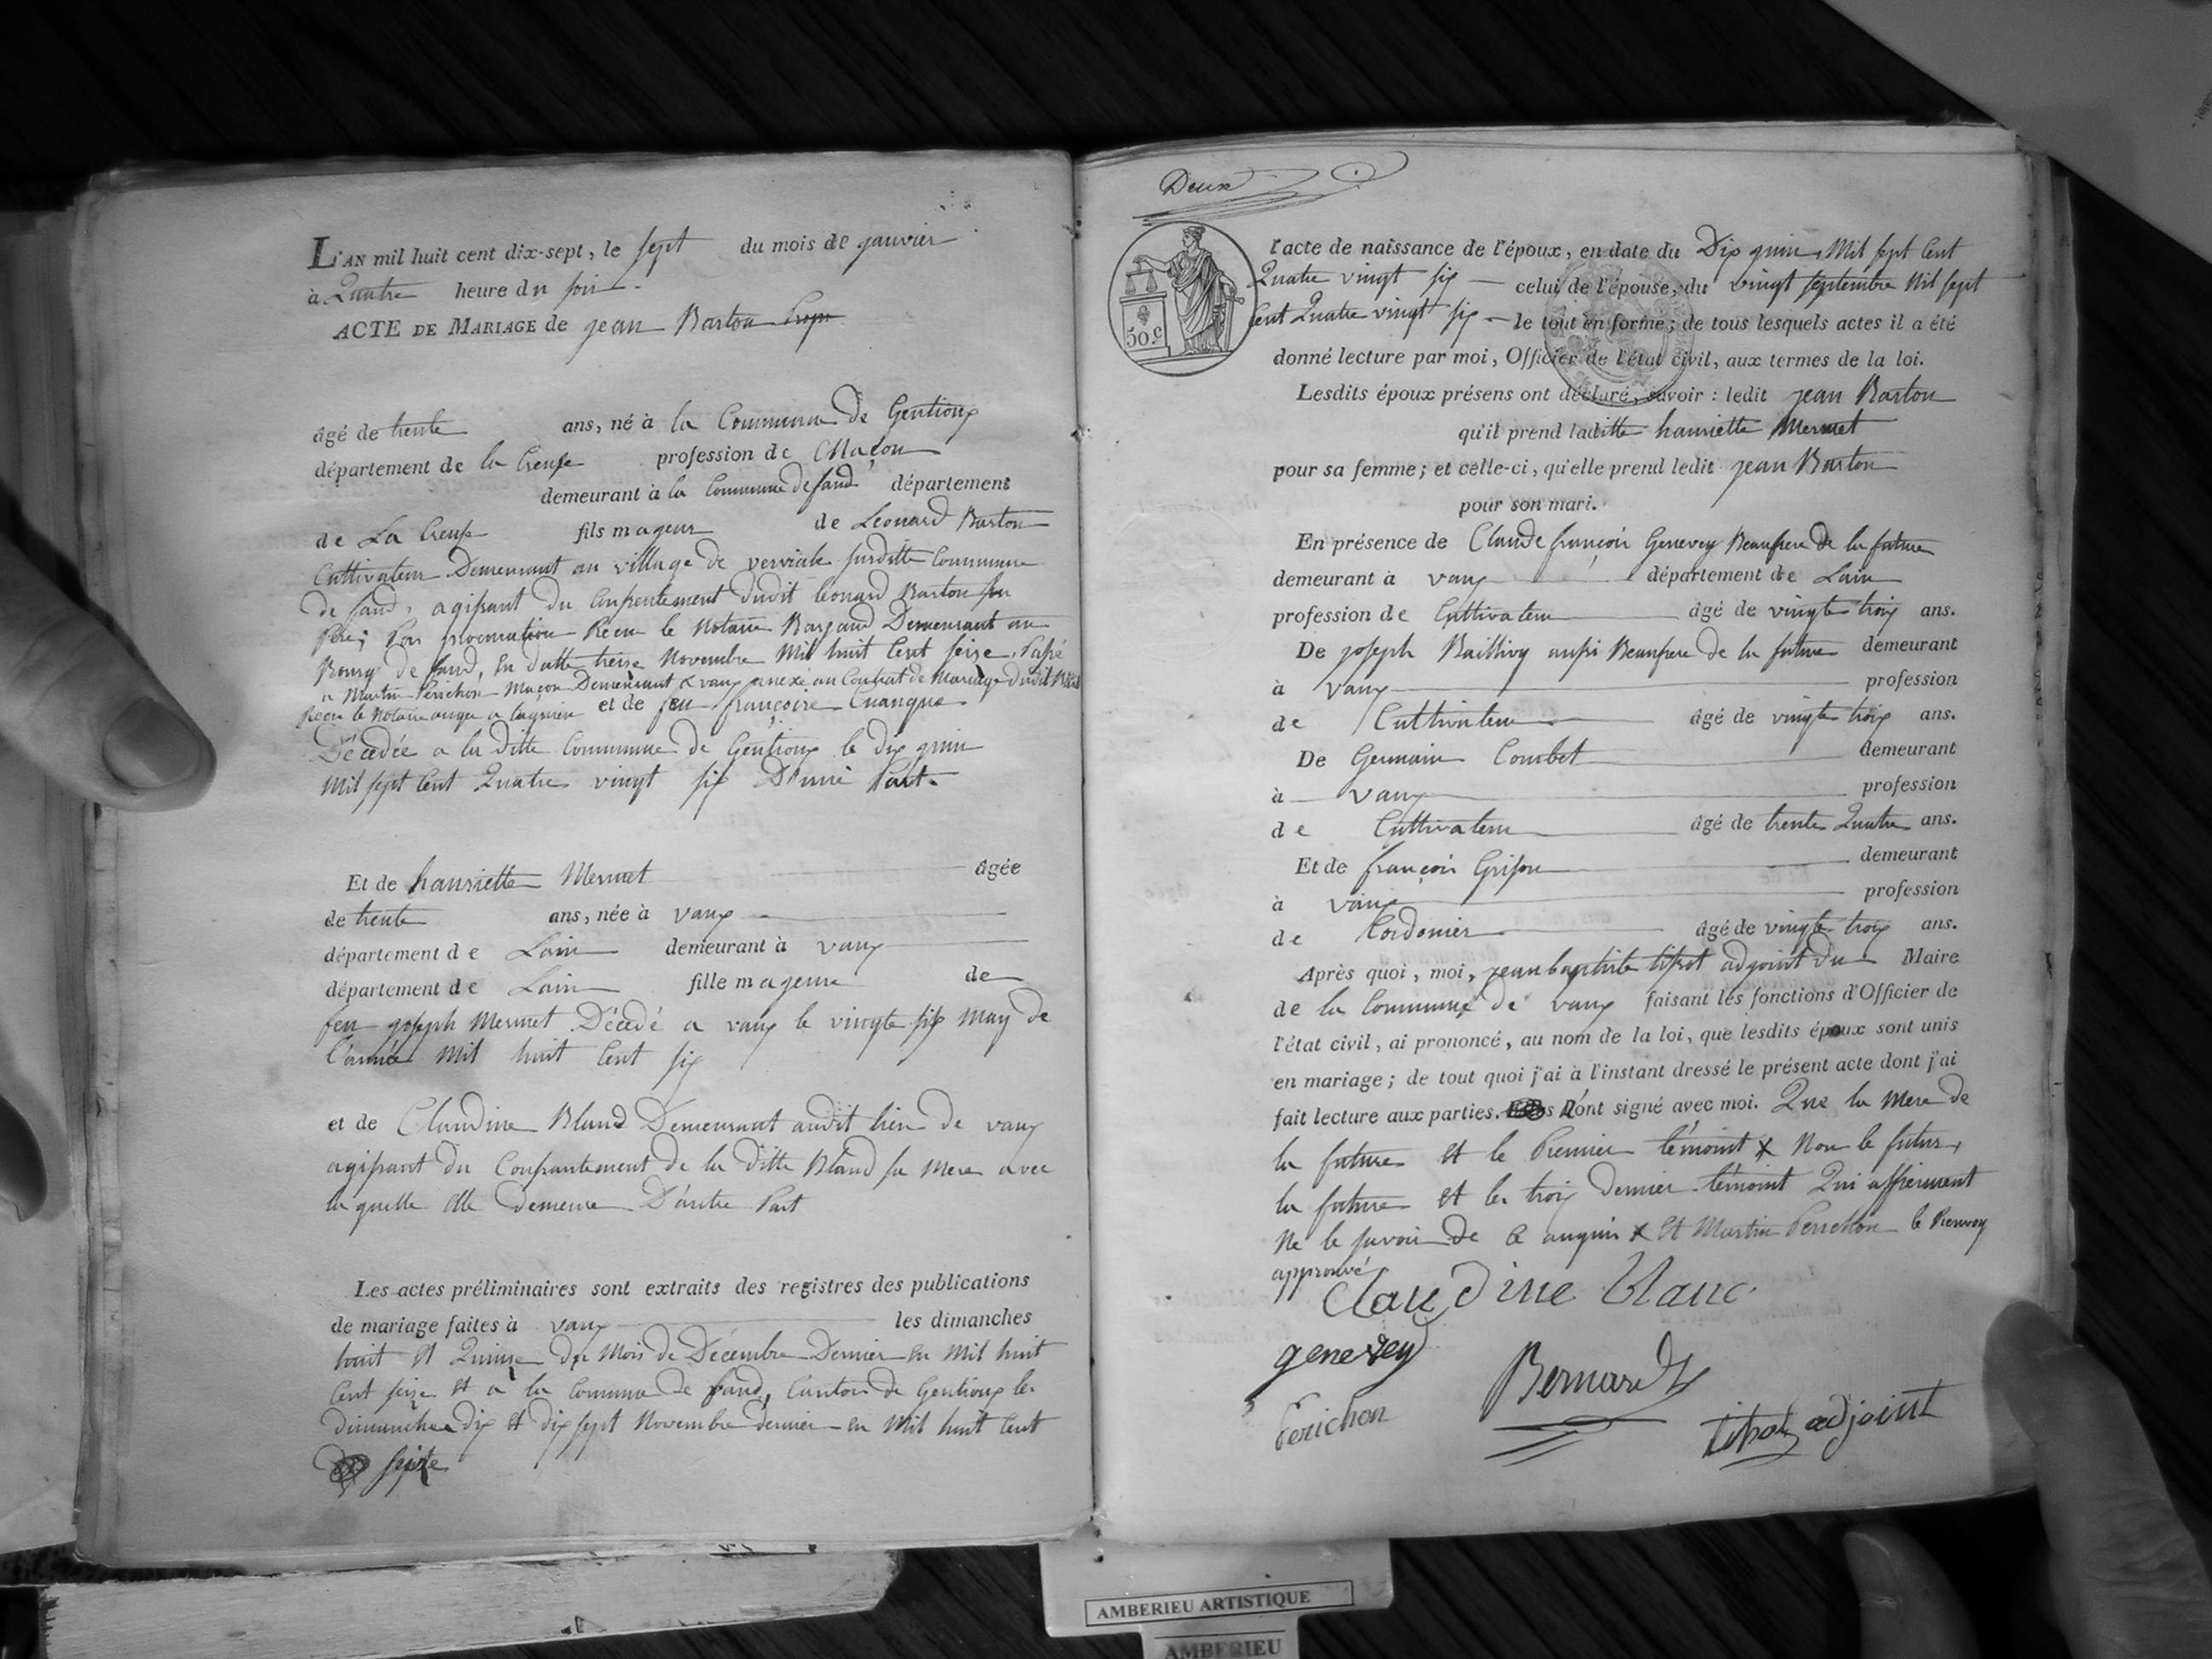 L'AN mil huit cent dix-sept, le sept du mois de janvier
à Quattre heure du soir.
ACTE DE MARIAGE de jean Barton
âgé de trente ans, né à la Commune de Gentioux
département de la Creuse profession de Maçon
demeurant à la Commune de faud département
de La Creuse fils majeur de Leonard Barton
Cultivateur Demeurant au village de surditte Commune
de faud, agissant du Consentement dudit leonard Barton son
Pere; Par procuration Recue le Notaire Barjaud Demeurant au
Bourg de faud, En datte treise Novembre Mil huit Cent seise, Passé
a Martin Perichon Maçon Demeurant a vaux anexe au Contrat de Mariage dudit
Recu le Notaire auger a lagnieu et de feu françoise
Décédée a la ditte Commune de Gentioux le dix juin
Mil sept Cent Quatre vingt six D'une Part.
Et de hanriette Mermet âgée
de trente ans, née à vaux
département de Lain demeurant à vaux
département de Lain fille majeure de
feu joseph Mermet Décédé a vaux le vingte six May de
l'année Mil huit Cent six
et de Claudine Bland Demeurant audit lieu de vaux
agissant du Consantement de la ditte Bland sa Mere avec
la quelle elle demeure D'autre Part
Les actes préliminaires sont extraits des registres des publications
de mariage faites à vaux les dimanches
huit et Quinse du Mois de Décembre Dernier en Mil huit
Cent seize et a la Commune de faud, Canton de Gentioux les
dimanche dix et dix sept Novembre dernier en Mil huit Cent
seize
Deux
50.c
l'acte de naissance de l'époux, en date du Dix juin, Mil sept Cent
Quatre vingt six celui de l'épouse, du vingt septembre Mil sept
Cent Quatre vingt six le tout en forme; de tous lesquels actes il a été
donné lecture par moi, Officier de l'état civil, aux termes de la loi.
Lesdits époux présens ont déclaré, savoir : ledit jean Barton
qu'il prend laditte hanriette Mermet
pour sa femme; et celle-ci, qu'elle prend ledit jean Barton
pour son mari.
En présence de Claude françois Genevey Beaufrere de la future
demeurant à vaux département de Lain
profession de Cultivateur âgé de vingte trois ans.
De joseph Baillivy aussi Beaufrere de la future demeurant
à vaux profession
de Cultivateur âgé de vingte trois ans.
De Germain Combet demeurant
à vaux profession
de Cultivateur âgé de trente Quatre ans.
Et de françois Grison demeurant
à vaux profession
de Cordonier âgé de vingte trois ans.
Après quoi, moi, jean baptiste tissot adjoint du Maire
de la Commune de vaux faisant les fonctions d'Officier de
l'état civil, ai prononcé, au nom de la loi, que lesdits époux sont unis
en mariage; de tout quoi j'ai à l'instant dressé le présent acte dont j'ai
fait lecture aux parties. N'ont signé avec moi. Que la Mere de
la future et le Premier témoint x Non le futur,
la future et les trois dernier témoint Qui affirment
Ne le savoir de ce enquis x Et Martin Perrichon le Renvoy
approuvé
Claudine blanc.
genevey
Bernard
Perichon
tissot adjoint
AMBERIEU ARTISTIQUE
AMBERIEU